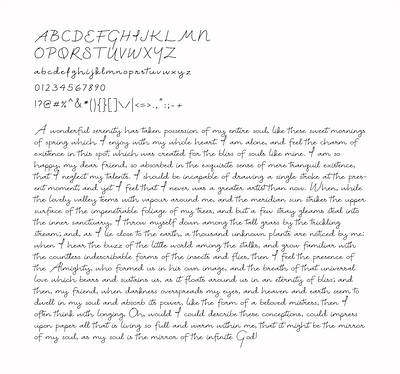 ABCDEFGHIJKLMN
OPQRSTUVWXYZ
abcdefghijklmnopqrstuvwxyz
01234567890
!?@#%^&*(){}[]\/|<=>.,":;-+
A wonderful serenity has taken possession of my entire soul, like these sweet mornings
of spring which I enjoy with my whole heart. I am alone, and feel the charm of
existence in this spot, which was created for the bliss of souls like mine. I am so
happy, my dear friend, so absorbed in the exquisite sense of mere tranquil existence,
that I neglect my talents. I should be incapable of drawing a single stroke at the pres-
ent moment; and yet I feel that I never was a greater artist than now. When, while
the lovely valley teems with vapour around me, and the meridian sun strikes the upper
surface of the impenetrable foliage of my trees, and but a few stray gleams steal into
the inner sanctuary, I throw myself down among the tall grass by the trickling
stream; and, as I lie close to the earth, a thousand unknown plants are noticed by me:
when I hear the buzz of the little world among the stalks, and grow familiar with
the countless indescribable forms of the insects and flies, then I feel the presence of
the Almighty, who formed us in his own image, and the breath of that universal
love which bears and sustains us, as it floats around us in an eternity of bliss; and
then, my friend, when darkness overspreads my eyes, and heaven and earth seem to
dwell in my soul and absorb its power, like the form of a beloved mistress, then I
often think with longing, Oh, would I could describe these conceptions, could impress
upon paper all that is living so full and warm within me, that it might be the mirror
of my soul, as my soul is the mirror of the infinite God!